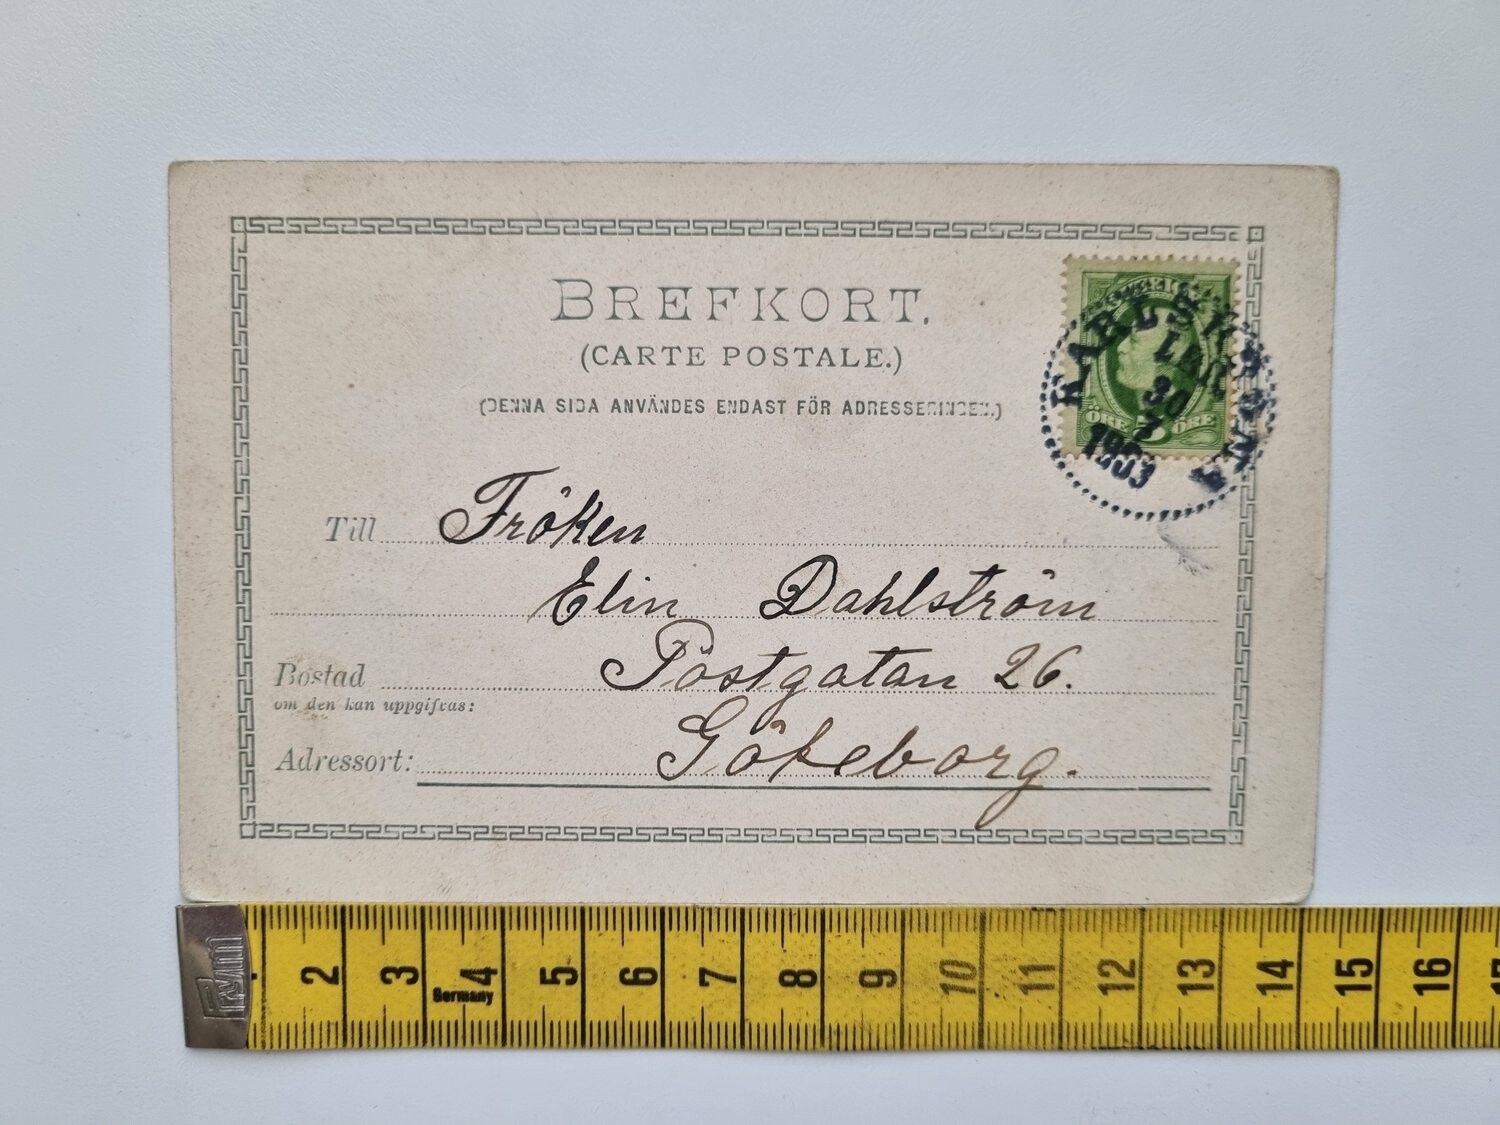 BREFKORT.
(CARTE POSTALE.)
(DENNA SIDA ANVÄNDES ENDAST FÖR ADRESSERINGEN.)
KARLSKRONA
LBR
30
7
1903
ÖRE 5 ÖRE
Till Fröken
Elin Dahlström
Bostad Postgatan 26.
om den kan uppgifvas:
Adressort: Göteborg.
2 3 4 5 6 7 8 9 10 11 12 13 14 15 16 17
Germany